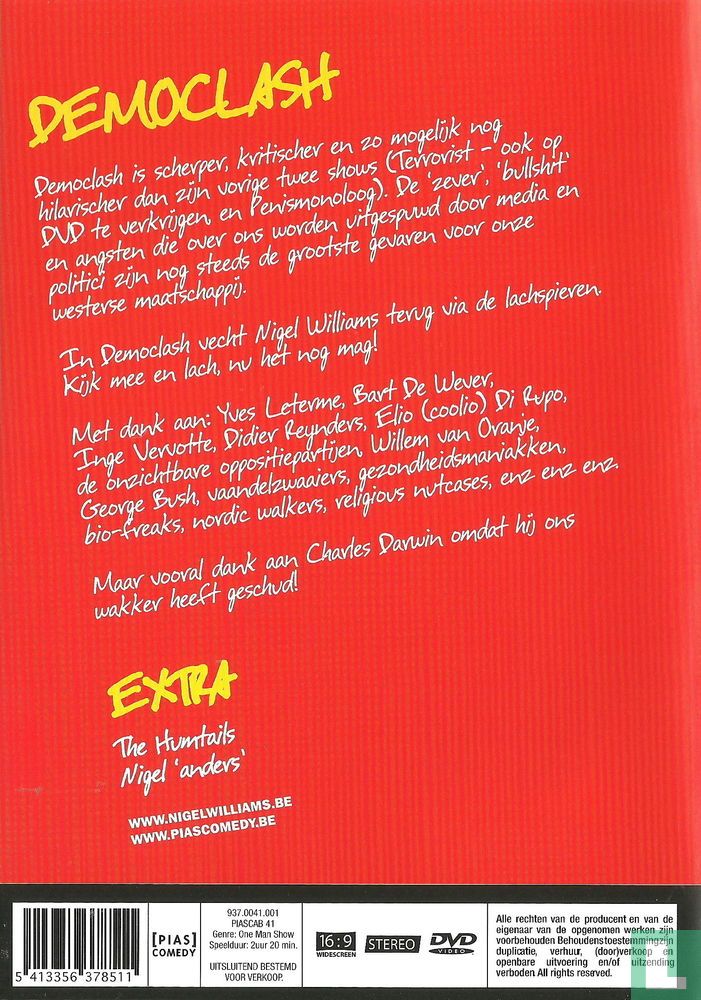 DEMOCLASH
Democlash is scherper, kritischer en zo mogelijk nog
hilarischer dan zijn vorige twee shows (Terrorist - ook op
DVD te verkrijgen, en Penismonoloog). De 'zever', 'bullshit'
en angsten die over ons worden uitgespuwd door media en
politici zijn nog steeds de grootste gevaren voor onze
westerse maatschappij.
In Democlash vecht Nigel Williams terug via de lachspieren.
Kijk mee en lach, nu het nog mag!
Met dank aan: Yves Leterme, Bart De Wever,
Inge Vervotte, Didier Reynders, Elio (coolio) Di Rupo,
de onzichtbare oppositiepartijen, Willem van Oranje,
George Bush, vaandelzwaaiers, gezondheidsmaniakken,
bio-freaks, nordic walkers, religious nutcases, enz enz enz.
Maar vooral dank aan Charles Darwin omdat hij ons
wakker heeft geschud!
EXTRA
The Humtails
Nigel 'anders'
WWW.NIGELWILLIAMS.BE
WWW.PIASCOMEDY.BE
5 413356 378511
[PIAS]
COMEDY
937.0041.001
PIASCAB 41
Genre: One Man Show
Speelduur: 2uur 20 min.
UITSLUITEND BESTEMD
VOOR VERKOOP.
16:9
WIDESCREEN
STEREO
DVD
VIDEO
Alle rechten van de producent en van de
eigenaar van de opgenomen werken zijn
voorbehouden Behoudenstoestemmingzijn
duplicatie, verhuur, (door)verkoop en
openbare uitvoering en/of uitzending
verboden. All rights reserved.